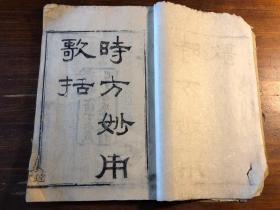 時方妙用
歌括